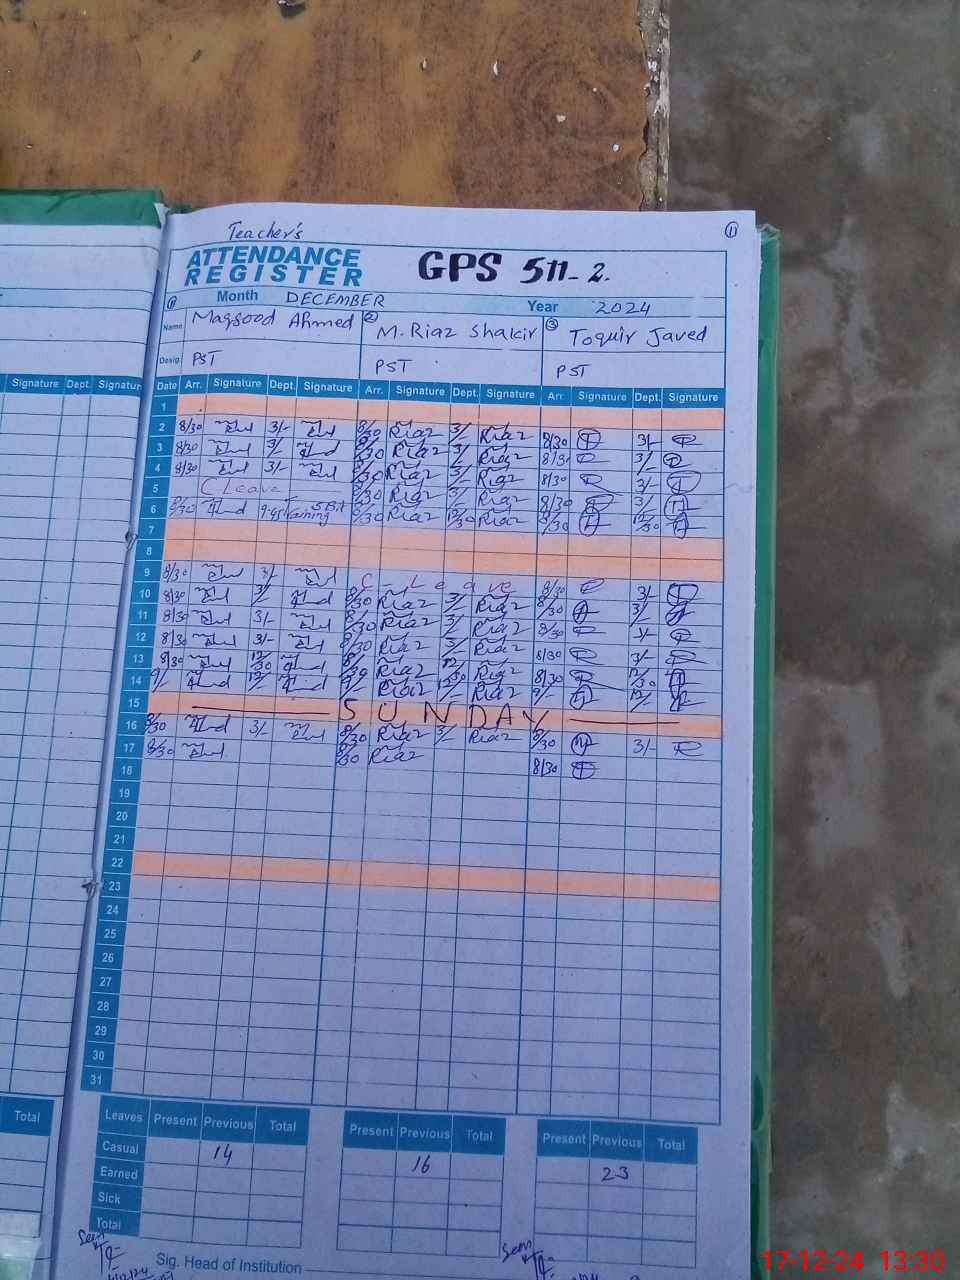 Teacher's
ATTENDANCE
REGISTER
GPS 511-2.
11
Month DECEMBER Year 2024
Name Maqsood Ahmed 2 M. Riaz Shakir 3 Toquir Javed
Desig. PST PST PST
Signature Dept. Signature Date Arr. Signature Dept. Signature Arr. Signature Dept. Signature Arr. Signature Dept. Signature
1
2 8/30 3/- 8/30 Riaz 3/- Riaz 8/30 3/-
3 8/30 3/- 8/30 Riaz 3/- Riaz 8/30 3/-
4 8/30 3/- 8/30 Riaz 3/- Riaz 8/30 3/-
5 C Leave 8/30 Riaz 3/- Riaz 8/30 3/-
6 8/30 Training 8/30 Riaz 12/30 Riaz 8/30 12/30
7
8
9 8/30 3/- C - Leave 8/30 3/-
10 8/30 3/- 8/30 Riaz 3/- Riaz 8/30 3/-
11 8/30 3/- 8/30 Riaz 3/- Riaz 8/30
12 8/30 3/- 8/30 Riaz 3/- Riaz 8/30 3/-
13 8/30 12/30 8/30 Riaz 12/30 Riaz 8/30 12/30
14 9/- 12/- 9/- Riaz 12/- Riaz 9/- 12/-
15 SUNDAY
16 8/30 3/- 8/30 Riaz 3/- Riaz 8/30 3/-
17 8/30 8/30 Riaz 8/30
18
19
20
21
22
23
24
25
26
27
28
29
30
31
Total Leaves Present Previous Total Present Previous Total Present Previous Total
Casual 14 16 23
Earned
Sick
Total
Seen Seen
Sig. Head of Institution
17-12-24 13:30